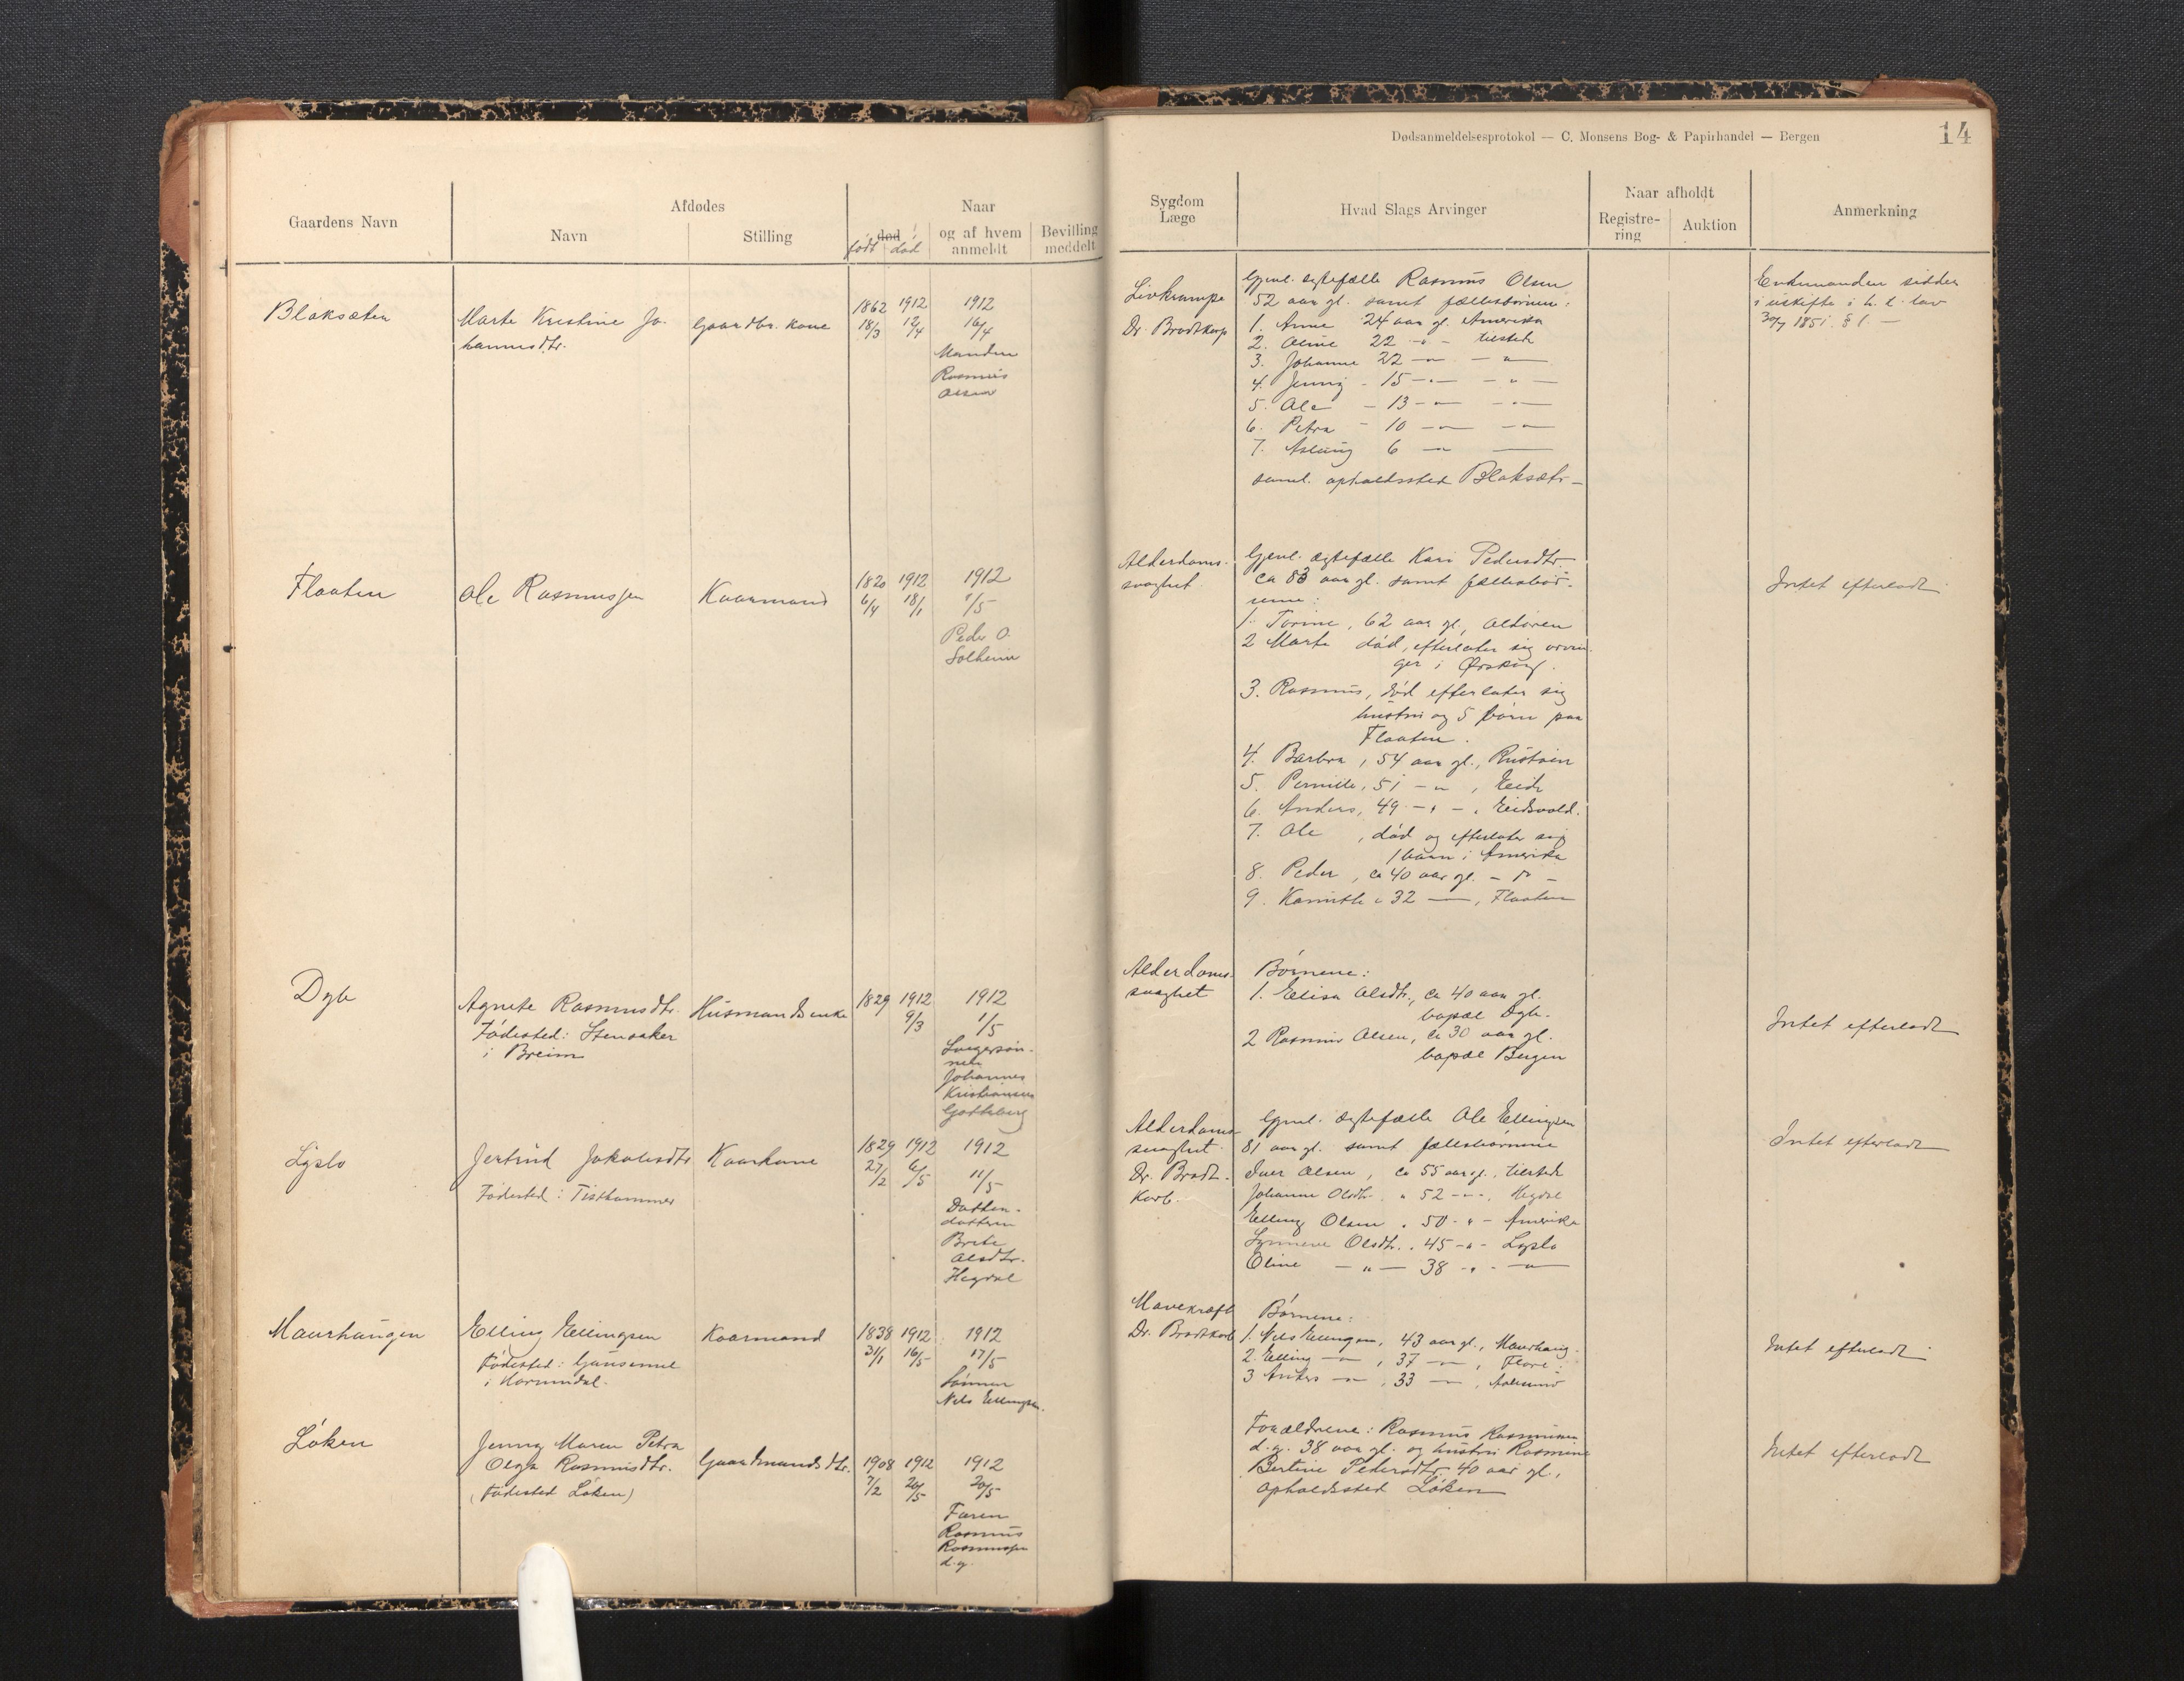 Dødsanmeldelsesprotokol — C. Monsens Bog- & Papirhandel — Bergen
14
Gaardens Navn
Afdødes
Navn
Stilling
Naar
død
født død
og af hvem
anmeldt
Bevilling
meddelt
Sygdom
Læge
Hvad Slags Arvinger
Naar afholdt
Registre-
ring
Auktion
Anmerkning
Blaksæter
Marte Kristine Jo-
hannesdtr.
Gaardbr. kone
1862 1912 1912
18/3 12/4 16/4
Manden
Rasmus
Olsen
Livkrampe
Dr. Bradtkorb
Gjenl. ægtefælle Rasmus Olsen
52 aar gl. samt fællesbørnene:
1. Anne 24 aar gl. Amerika
2. Oline 22 -"- tilsted
3. Johanne 22 -"- -"-
4. Jenny - 15 -"- -"-
5. Ole - 13 -"- -"-
6. Petra - 10 -"- -"-
7. Aslaug 6 -"- —
saml. opholdssted Blaksæter -
Enkemanden sidder
i uskifte i h. t. lov
30/7 1851 § 1. —
Flaaten
Ole Rasmussen
Kaarmand
1820 1912 1912
6/4 18/1 1/5
Peder O.
Solheim
Alderdoms-
svaghet
Gjenl. ægtefælle Kari Pedersdtr.
ca 83 aar gl. samt fællesbør-
nene:
1. Torine, 62 aar gl.,
2 Marte død, efterlater sig arvin-
ger i Ørskog.
3. Rasmus, død efterlater sig
hustru og 5 børn paa
Flaaten.
4. Barbra, 54 aar gl., Rustøen
5. Pernille, 51 -"-, Eide
6. Anders, 49 -"-, Eidsvold.
7. Ole, død og efterlater sig
1 barn i Amerika
8. Peder, ca 40 aar gl. - " -
9. 32 —, Flaaten
Intet efterladt
Dyb
Agnete Rasmusdtr.
Fødested: Stensaker
i Breim
Husmandsenke
1829 1912 1912
9/3 1/5
Svigersøn-
nen
Johannes
Kristiansen
Gotteberg
Alderdoms-
svaghet
Børnene:
1. Elisa Olsdtr., ca 40 aar gl.
bopæl Dyb.
2 Rasmus Olsen, ca 30 aar gl.
bopæl Bergen
Intet efterladt
Lyslo
Jertrud Jakobsdtr
Fødested: Tisthammer
Kaarkone
1829 1912 1912
27/2 6/5 11/5
Datter-
datteren
Brite
Olsdtr.
Hegdal
Alderdoms-
svaghet
Dr. Bradt-
korb.
Gjenl. ægtefælle Ole Ellingsen
81 aar gl. samt fællesbørnene
Iver Olsen, ca 55 aar gl., tilsted
Johanne Olsdtr. " 52 -"-, Hegdal
Elling Olsen " 50 -"- Amerika
Synneve Olsdtr. " 45 -"- Lyslo
Oline -"- 38 -"- -"-
Intet efterladt
Maurhaugen
Elling Ellingsen
Fødested: Gausemel
i Hornindal.
Kaarmand
1838 1912 1912
31/1 16/5 17/5
Sønnen
Nils Ellingsen.
Mavekræft
Dr. Bradtkorb
Børnene:
1. Nils Ellingsen, 43 aar gl., Maurhaug.
2. Elling -"-, 37 -"-, Florø.
3 Anders -"-, 33 -"-, Aalesund
Intet efterladt
Løken
Jenny Maren Petra
Olga Rasmusdtr.
(Fødested Løken)
Gaardmandsdtr.
1908 1912 1912
7/2 20/5 20/5
Faren
Rasmus
Rasmussen
d.y.
Forældrene: Rasmus Rasmussen
d.y. 38 aar gl. og hustru Rasmine
Bertine Pedersdtr. 40 aar gl.,
opholdssted Løken
Intet efterladt